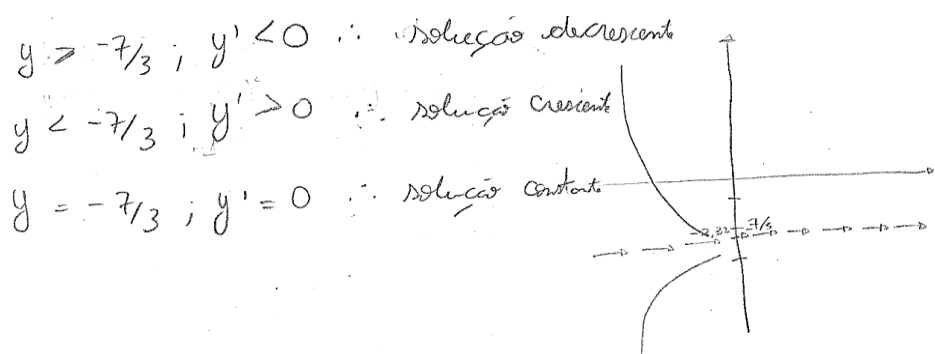 y > -7/3 ; y' < 0 ∴ solução decrescente
y < -7/3 ; y' > 0 ∴ solução crescente
y = -7/3 ; y' = 0 ∴ solução constante
-7/3